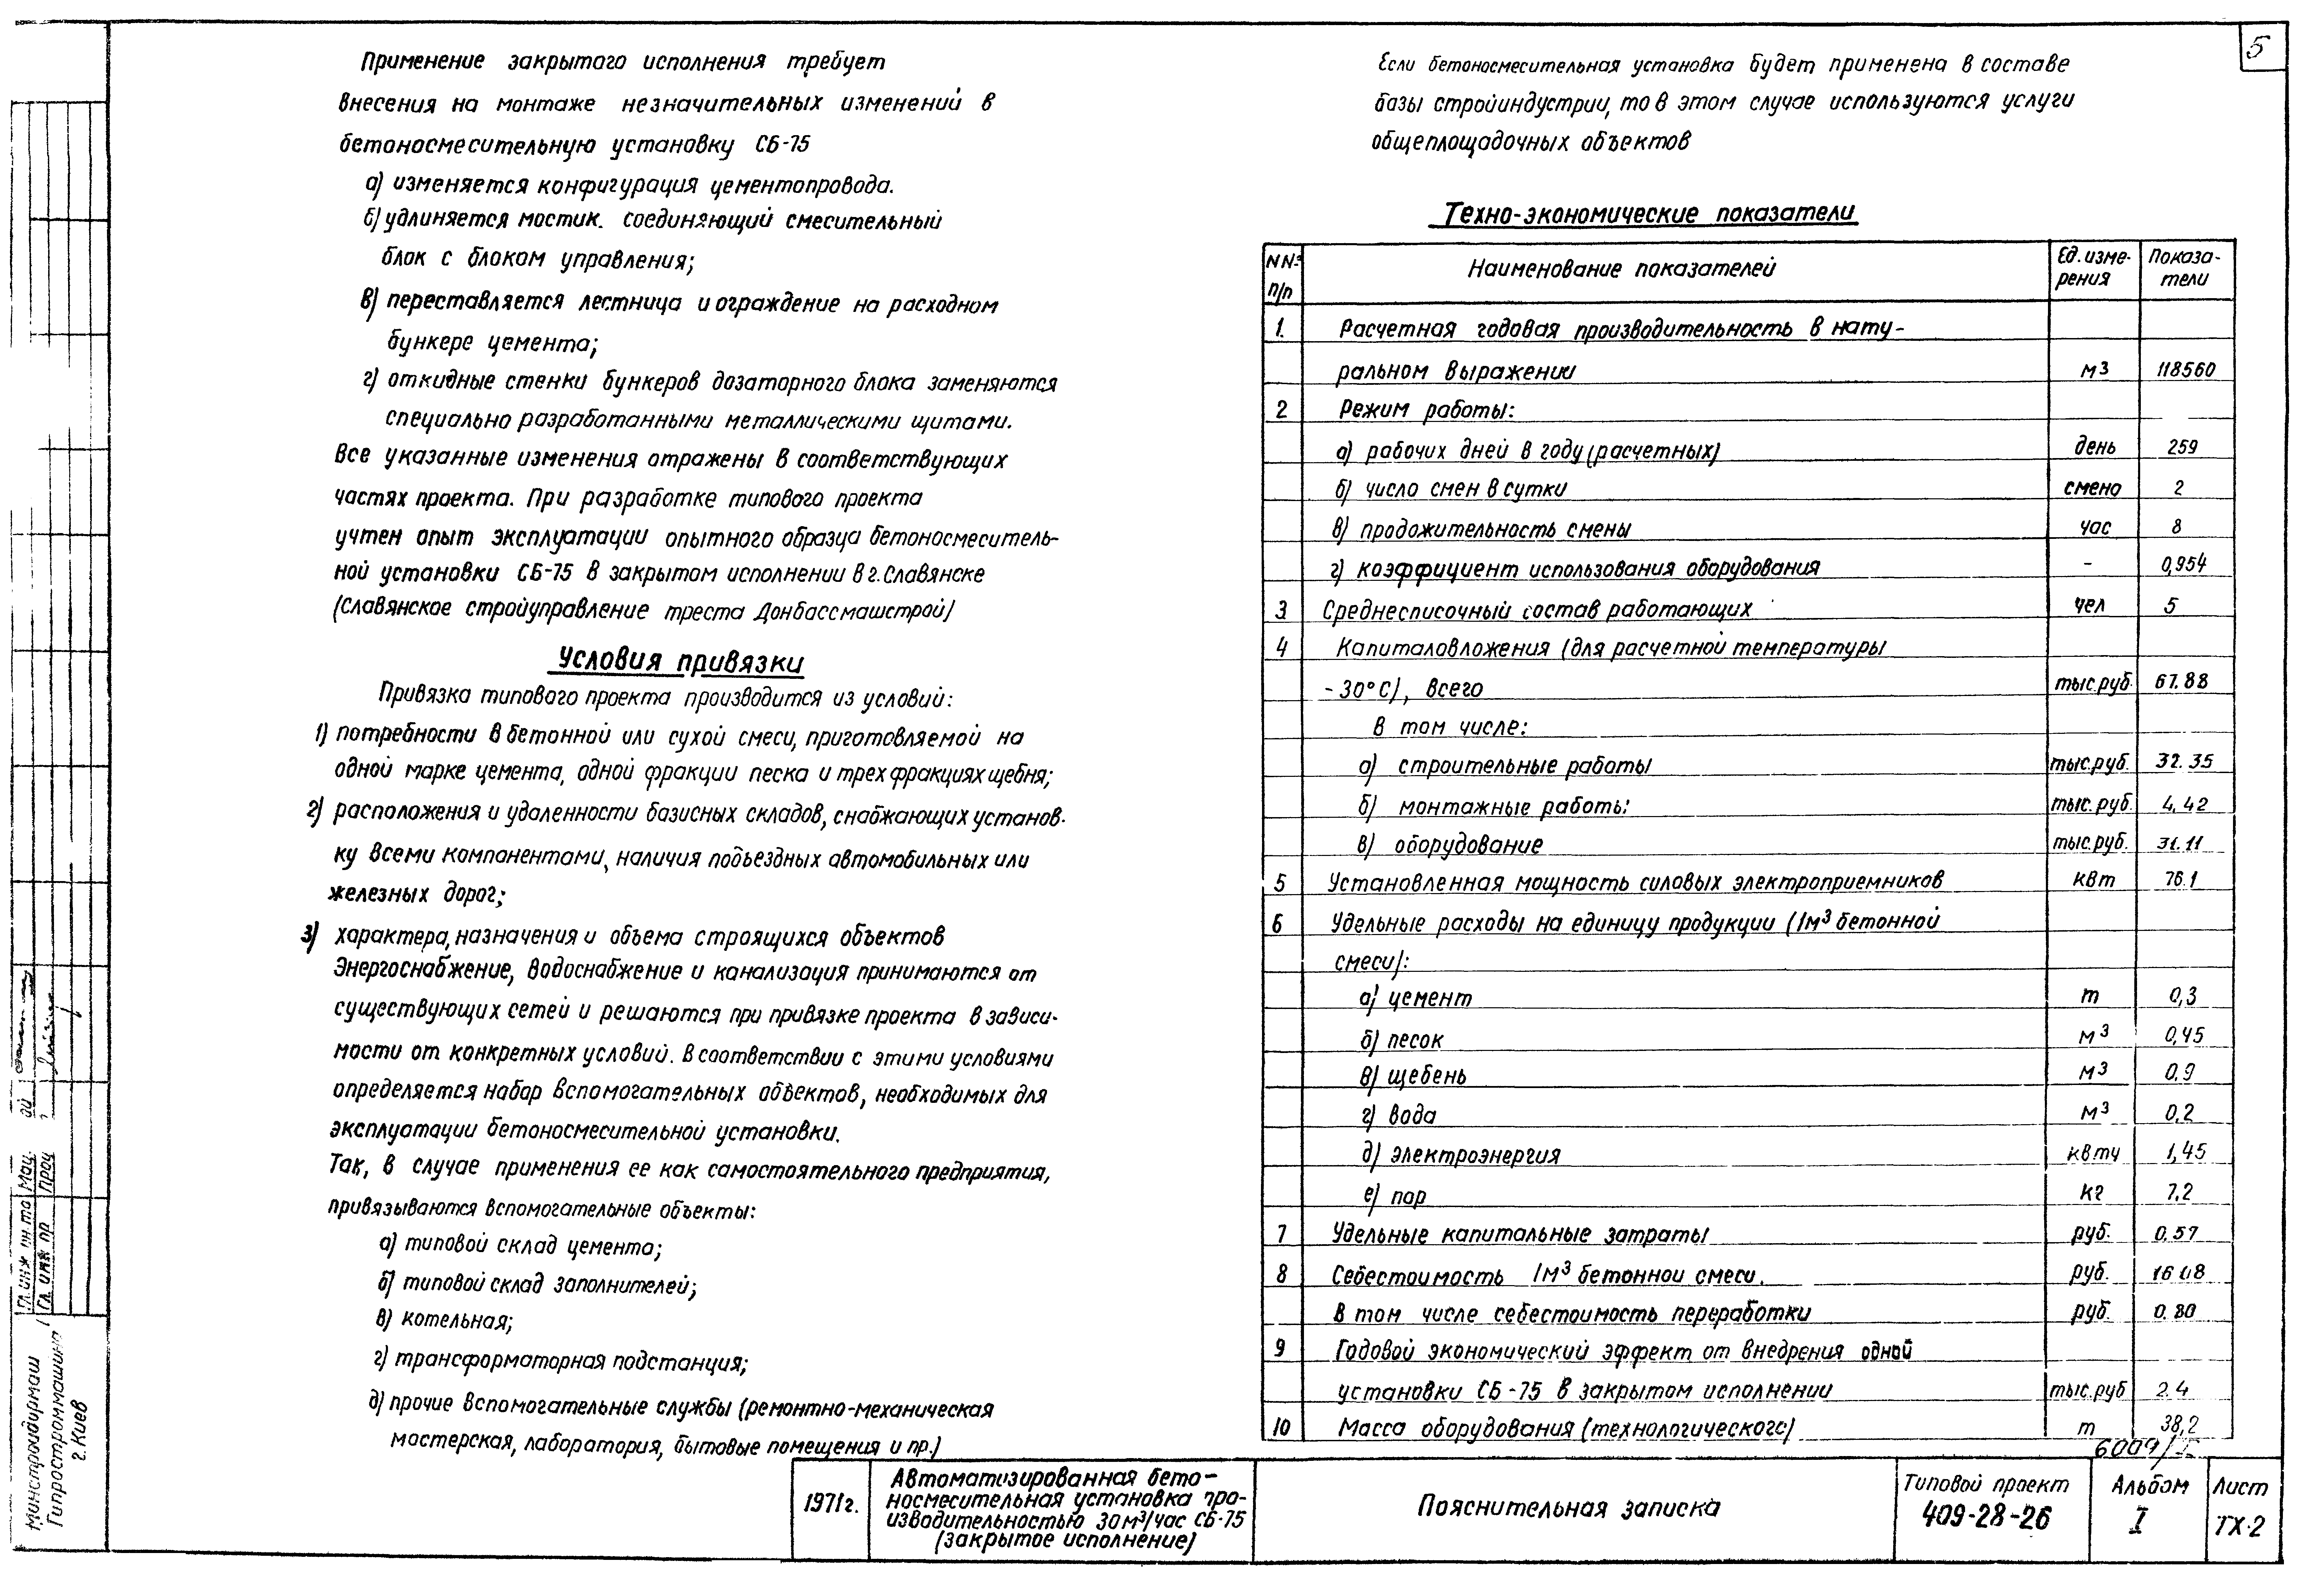 5
Применение закрытого исполнения требует
внесения на монтаже незначительных изменений в
бетоносмесительную установку СБ-75
а) изменяется конфигурация цементопровода.
б) удлиняется мостик. соединяющий смесительный
блок с блоком управления;
в) переставляется лестница и ограждение на расходном
бункере цемента;
г) откидные стенки бункеров дозаторного блока заменяются
специально разработанными металлическими щитами.
Все указанные изменения отражены в соответствующих
частях проекта. При разработке типового проекта
учтен опыт эксплуатации опытного образца бетоносмеситель-
ной установки СБ-75 в закрытом исполнении в г. Славянске
(Славянское стройуправление треста Донбассмашстрой)
Условия привязки
Привязка типового проекта производится из условий:
1) потребности в бетонной или сухой смеси, приготовляемой на
одной марке цемента, одной фракции песка и трех фракциях щебня;
2) расположения и удаленности базисных складов, снабжающих установ-
ку всеми компонентами, наличия подъездных автомобильных или
железных дорог;
3) характера, назначения и объема строящихся объектов
Энергоснабжение, водоснабжение и канализация принимаются от
существующих сетей и решаются при привязке проекта в зависи-
мости от конкретных условий. В соответствии с этими условиями
определяется набор вспомогательных объектов, необходимых для
эксплуатации бетоносмесительной установки.
Так, в случае применения ее как самостоятельного предприятия,
привязываются вспомогательные объекты:
а) типовой склад цемента;
б) типовой склад заполнителей;
в) котельная;
г) трансформаторная подстанция;
д) прочие вспомогательные службы (ремонтно-механическая
мастерская, лаборатория, бытовые помещения и пр.)
Если бетоносмесительная установка будет применена в составе
базы стройиндустрии, то в этом случае используются услуги
общеплощадочных объектов
Техно-экономические показатели
NN° п/п Наименование показателей Ед. изме-рения Показа-тели
1. Расчетная годовая производительность в нату-
ральном выражении м3 118560
2 Режим работы:
а) рабочих дней в году (расчетных) день 259
б) число смен в сутки смена 2
в) продожительность смены час 8
г) коэффициент использования оборудования - 0,954
3 Среднесписочный состав работающих чел 5
4 Капиталовложения (для расчетной температуры
-30°С), всего тыс.руб. 67.88
В том числе:
а) строительные работы тыс.руб. 32.35
б) монтажные работы: тыс.руб. 4,42
в) оборудование тыс.руб. 31.11
5 Установленная мощность силовых электроприемников квт 76.1
6 Удельные расходы на единицу продукции (1м³ бетонной
смеси):
а) цемент т 0,3
б) песок м3 0,45
в) щебень м3 0.9
г) вода м3 0.2
д) электроэнергия квтч 1,45
е) пар кг 7.2
7 Удельные капитальные затраты руб. 0.57
8 Себестоимость 1м³ бетонной смеси. руб. 16.08
В том числе себестоимость переработки руб. 0.80
9 Годовой экономический эффект от внедрения одной
установки СБ-75 в закрытом исполнении тыс.руб 2.4
10 Масса оборудования (технологического) т 38,2
1971г.
Автоматизированная бето-
носмесительная установка про-
изводительностью 30м³/час СБ-75
(закрытое исполнение)
Пояснительная записка
Типовой проект
409-28-26
Альбом
I
Лист
ТХ-2
Минстройдормаш
Гипростроммашина
г. Киев
Гл. инж ин та
Гл. инж пр